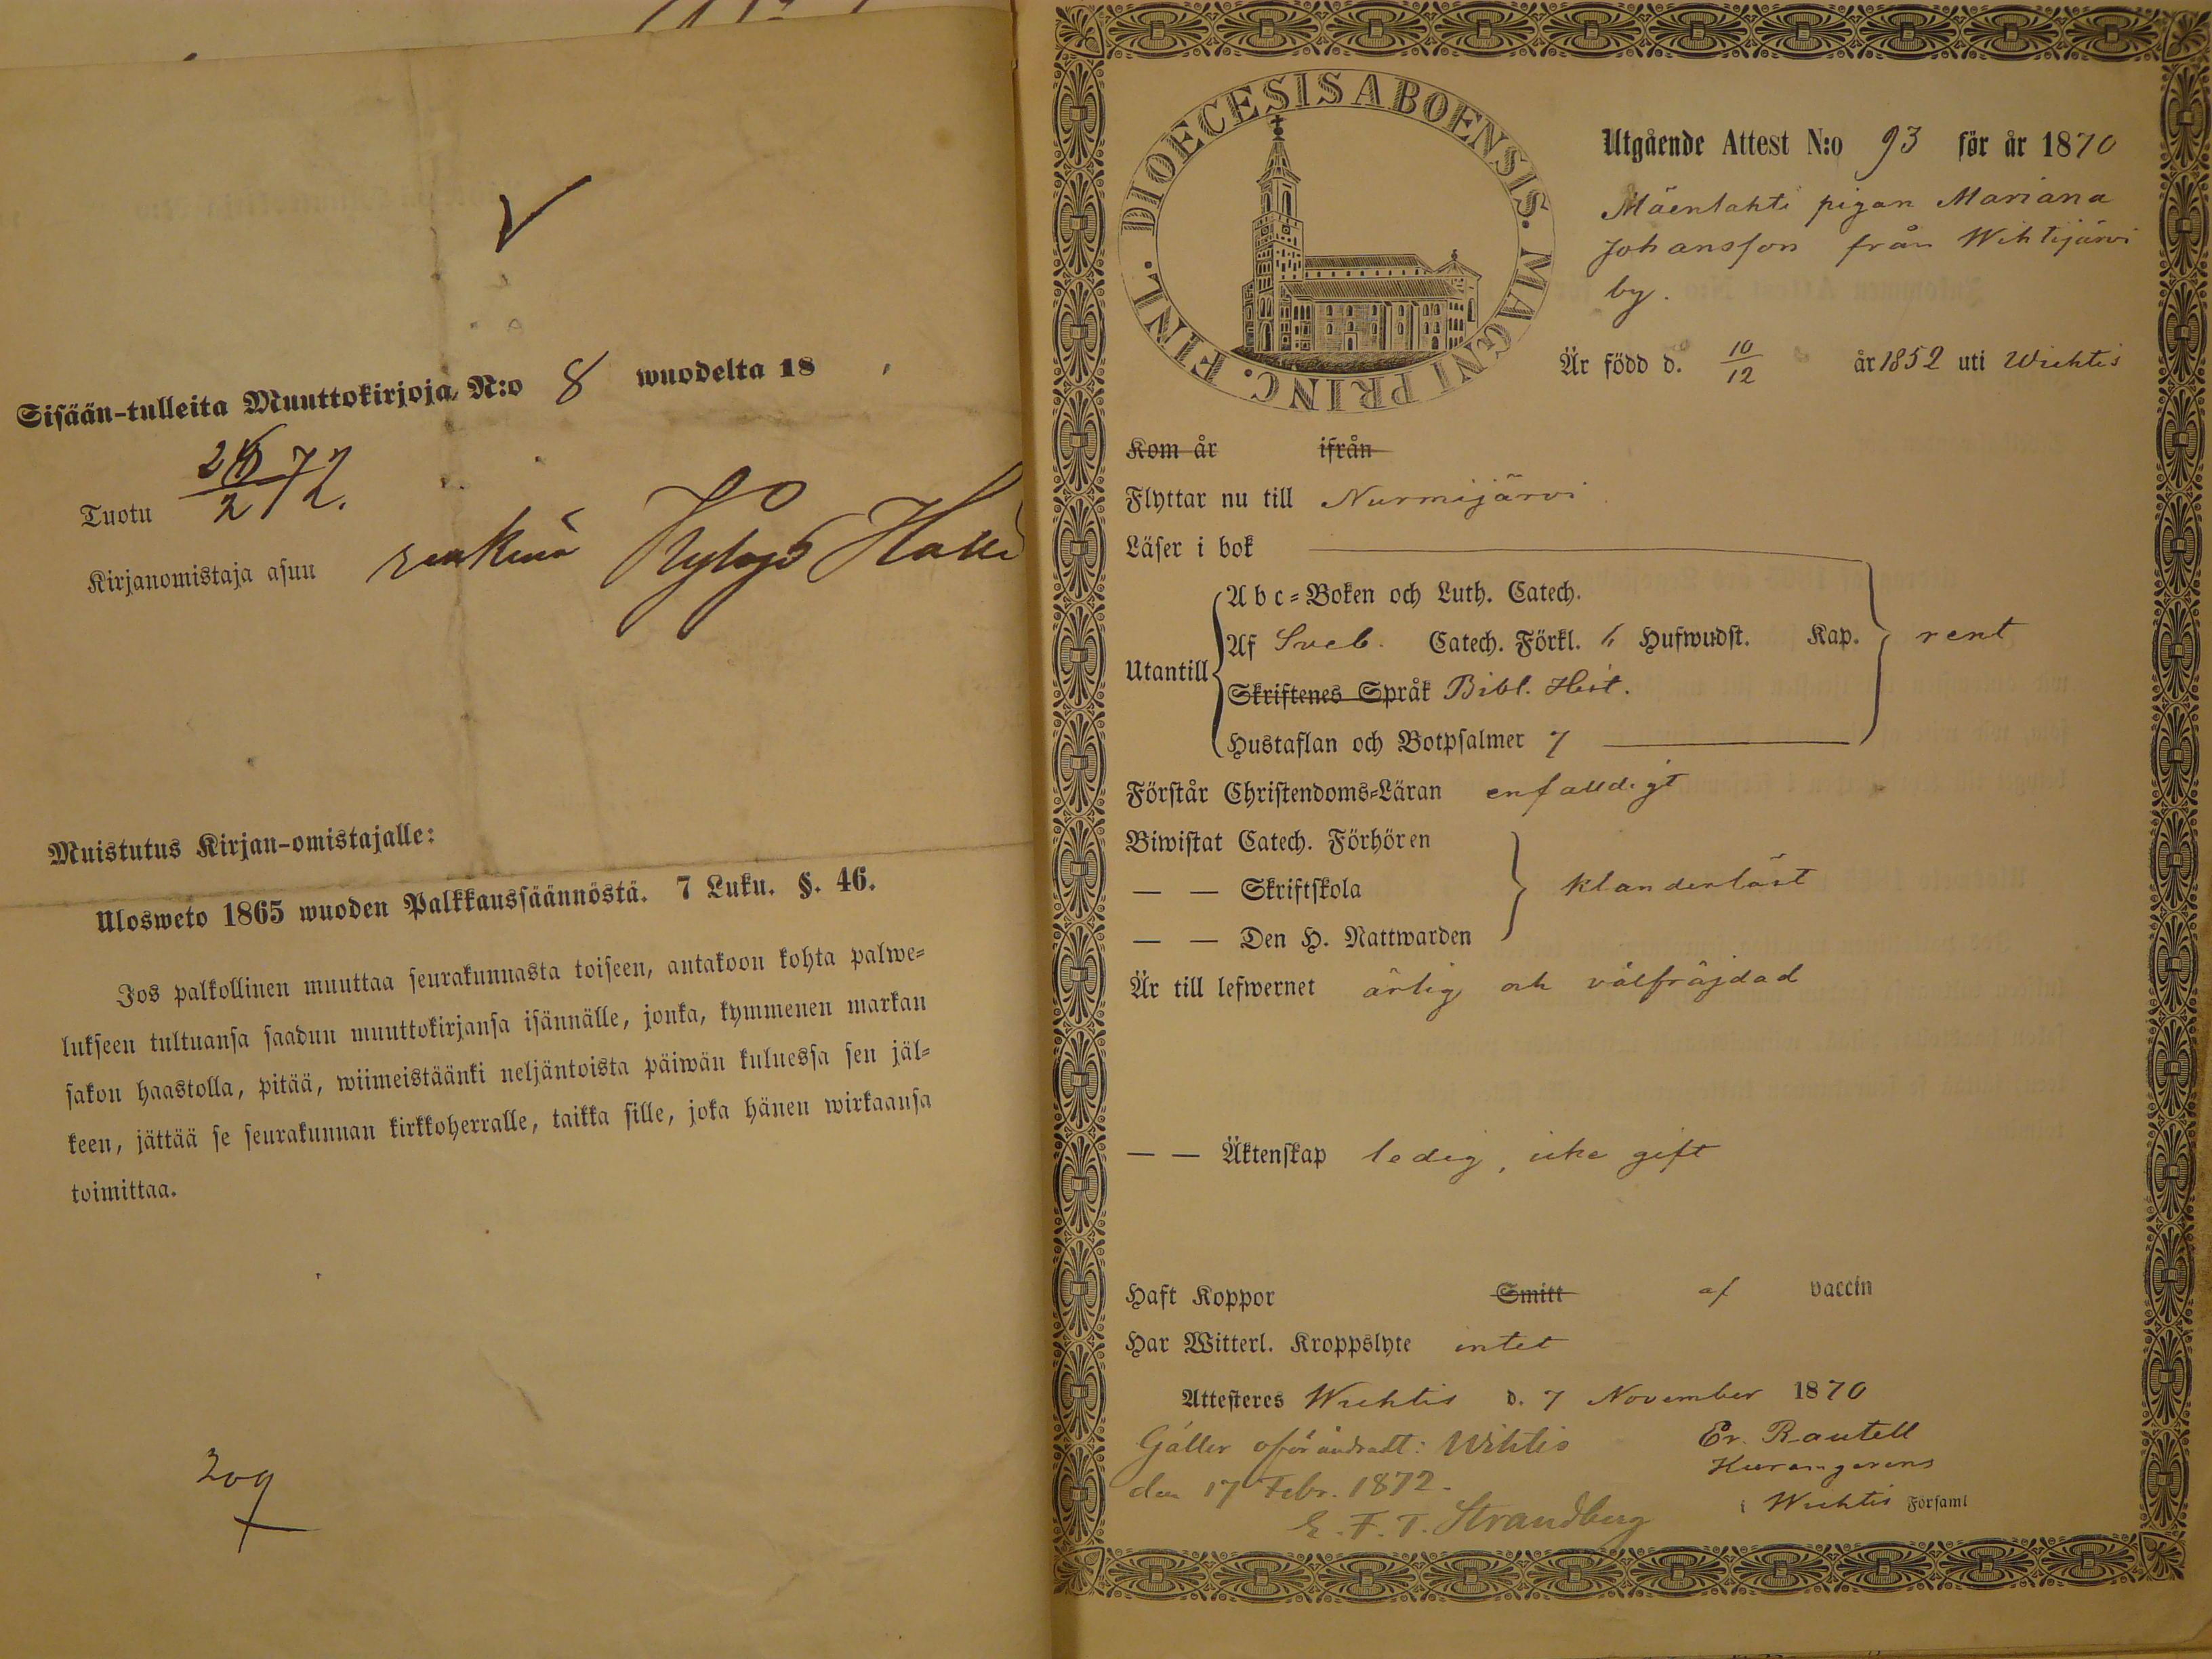 Sisään-tulleita Muuttokirjoja, N:o 8 wuodelta 18
Tuotu 2/72.
Kirjanomistaja asuu
Muistutus Kirjan-omistajalle:
Ulosweto 1865 wuoden Palkkaussäännöstä. 7 Luku. §. 46.
Jos palkollinen muuttaa seurakunnasta toiseen, antakoon kohta palwe=
lukseen tultuansa saadun muuttokirjansa isännälle, jonka, kymmenen markan
sakon haastolla, pitää, wiimeistäänki neljäntoista päiwän kuluessa sen jäl=
keen, jättää se seurakunnan kirkkoherralle, taikka sille, joka hänen wirkaansa
toimittaa.
209
DIOECESIS ABOENSIS. MAGNI PRINC. FINL.
Utgående Attest N:o 93 för år 1870
Mäenlahti pigan Mariana
Johansson från Wihtijärvi
by.
Är född d. 10/12 år 1852 uti Wichtis
Kom år ifrån
Flyttar nu till Nurmijärvi
Läser i bok
Utantill
Abc=Boken och Luth. Catech.
Af Sveb. Catech. Förkl. Hufwudst. Kap. rent
Skriftenes Språk Bibl. Hist.
Hustaflan och Botpsalmer 7
Förstår Christendoms=Läran enfalldigt
Biwistat Catech. Förhören
— — Skriftskola klanderlöst
— — Den H. Nattwarden
Är till lefwernet ärlig och välfräjdad
— — Äktenskap ledig, icke gift
Haft Koppor Smitt af vaccin
Har Witterl. Kroppslyte intet
Attesteres Wichtis d. 7 November 1870
Gäller oförändradt: Wihtis
den 17 Febr. 1872.
E. F. T. Strandberg
Er. Rautell
i Wichtis Församl